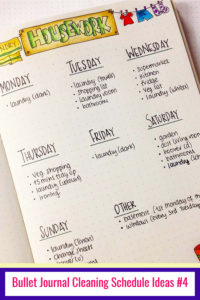 HOUSEWORK
MONDAY
• laundry (dark)
TUESDAY
• laundry (towels)
• shopping list
• laundry room
• bathrooms
WEDNESDAY
• supermarket
• kitchen
• fridge
• veg list
• laundry (white)
THURSDAY
• veg shopping
• 45 mins tidy up
• laundry
• ironing
FRIDAY
• laundry (dark)
SATURDAY
• garden
• dust living room
• hoover
• bathrooms
laundry
SUNDAY
• laundry (linen)
• change beds
OTHER
• basement (1st monday of the
• windows (every 3rd Tuesday
Bullet Journal Cleaning Schedule Ideas #4